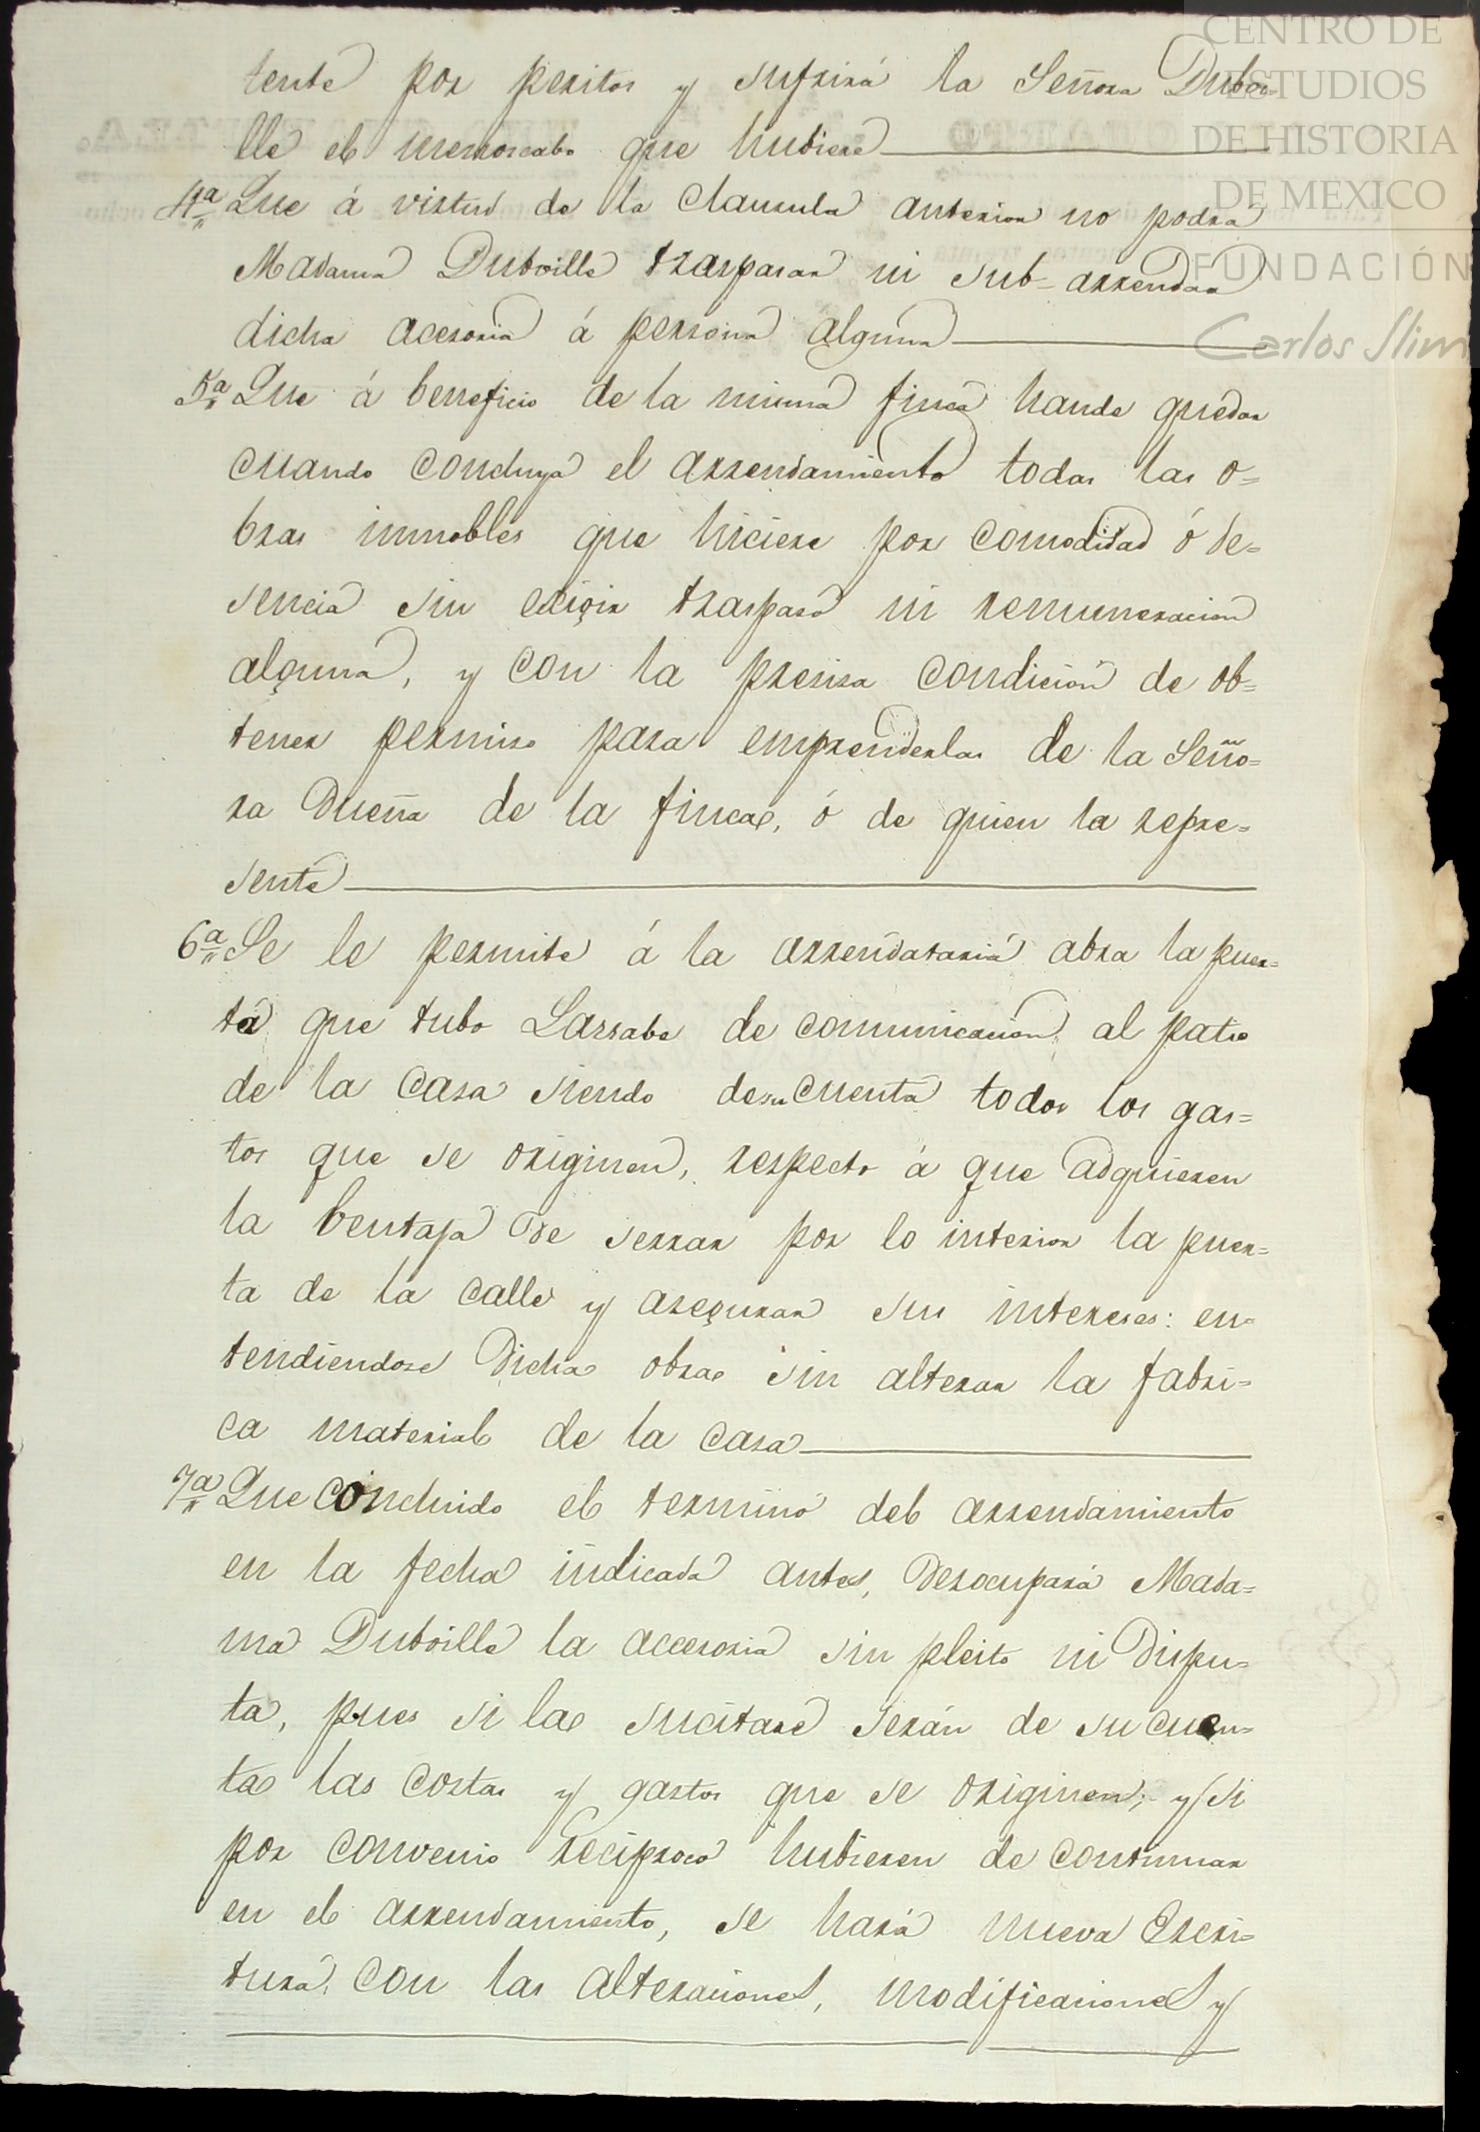 CENTRO DE
ESTUDIOS
DE HISTORIA
DE MEXICO
FUNDACIÓN
Carlos Slim
tente por peritos y sufrirá la Señora Duboi-
lle el menoscabo que hubiere
4ª Que á virtud de la Clausula anterior no podra
Madama Duboille trasparar ni sub-arrendar
dicha acesoria á persona alguna
5ª Que á beneficio de la misma finca hande quedar
cuando concluya el arrendamiento todas las o=
bras inmobles que hiciere por comodidad ó de=
sencia sin exigir traspaso ni remuneracion
alguna, y con la precisa condición de ob=
tener permiso para emprenderlas de la Seño=
ra Dueña de la finca, ó de quien la repre=
sente
6ª Se le permite á la arrendataria abra la puer=
ta que tubo Lassabe de comunicación al patio
de la casa siendo de su cuenta todos los gas=
tos que se originen, respecto á que adquieren
la bentaja de serrar por lo interior la puer=
ta de la calle y asegurar sus intereses: en=
tendiendose dicha obra sin alterar la fabri=
ca material de la casa
7ª Que concluido el termino del arrendamiento
en la fecha indicada antes, desocupará Mada=
ma Duboille la accesoria sin pleito ni dispu=
ta, pues si la sucitare serán de su cuen=
ta las costas y gastos que se originen; y si
por convenio reciproco hubieren de continuar
en el arrendamiento, se hará nueva Escri=
tura con las alteraciones, modificaciones y